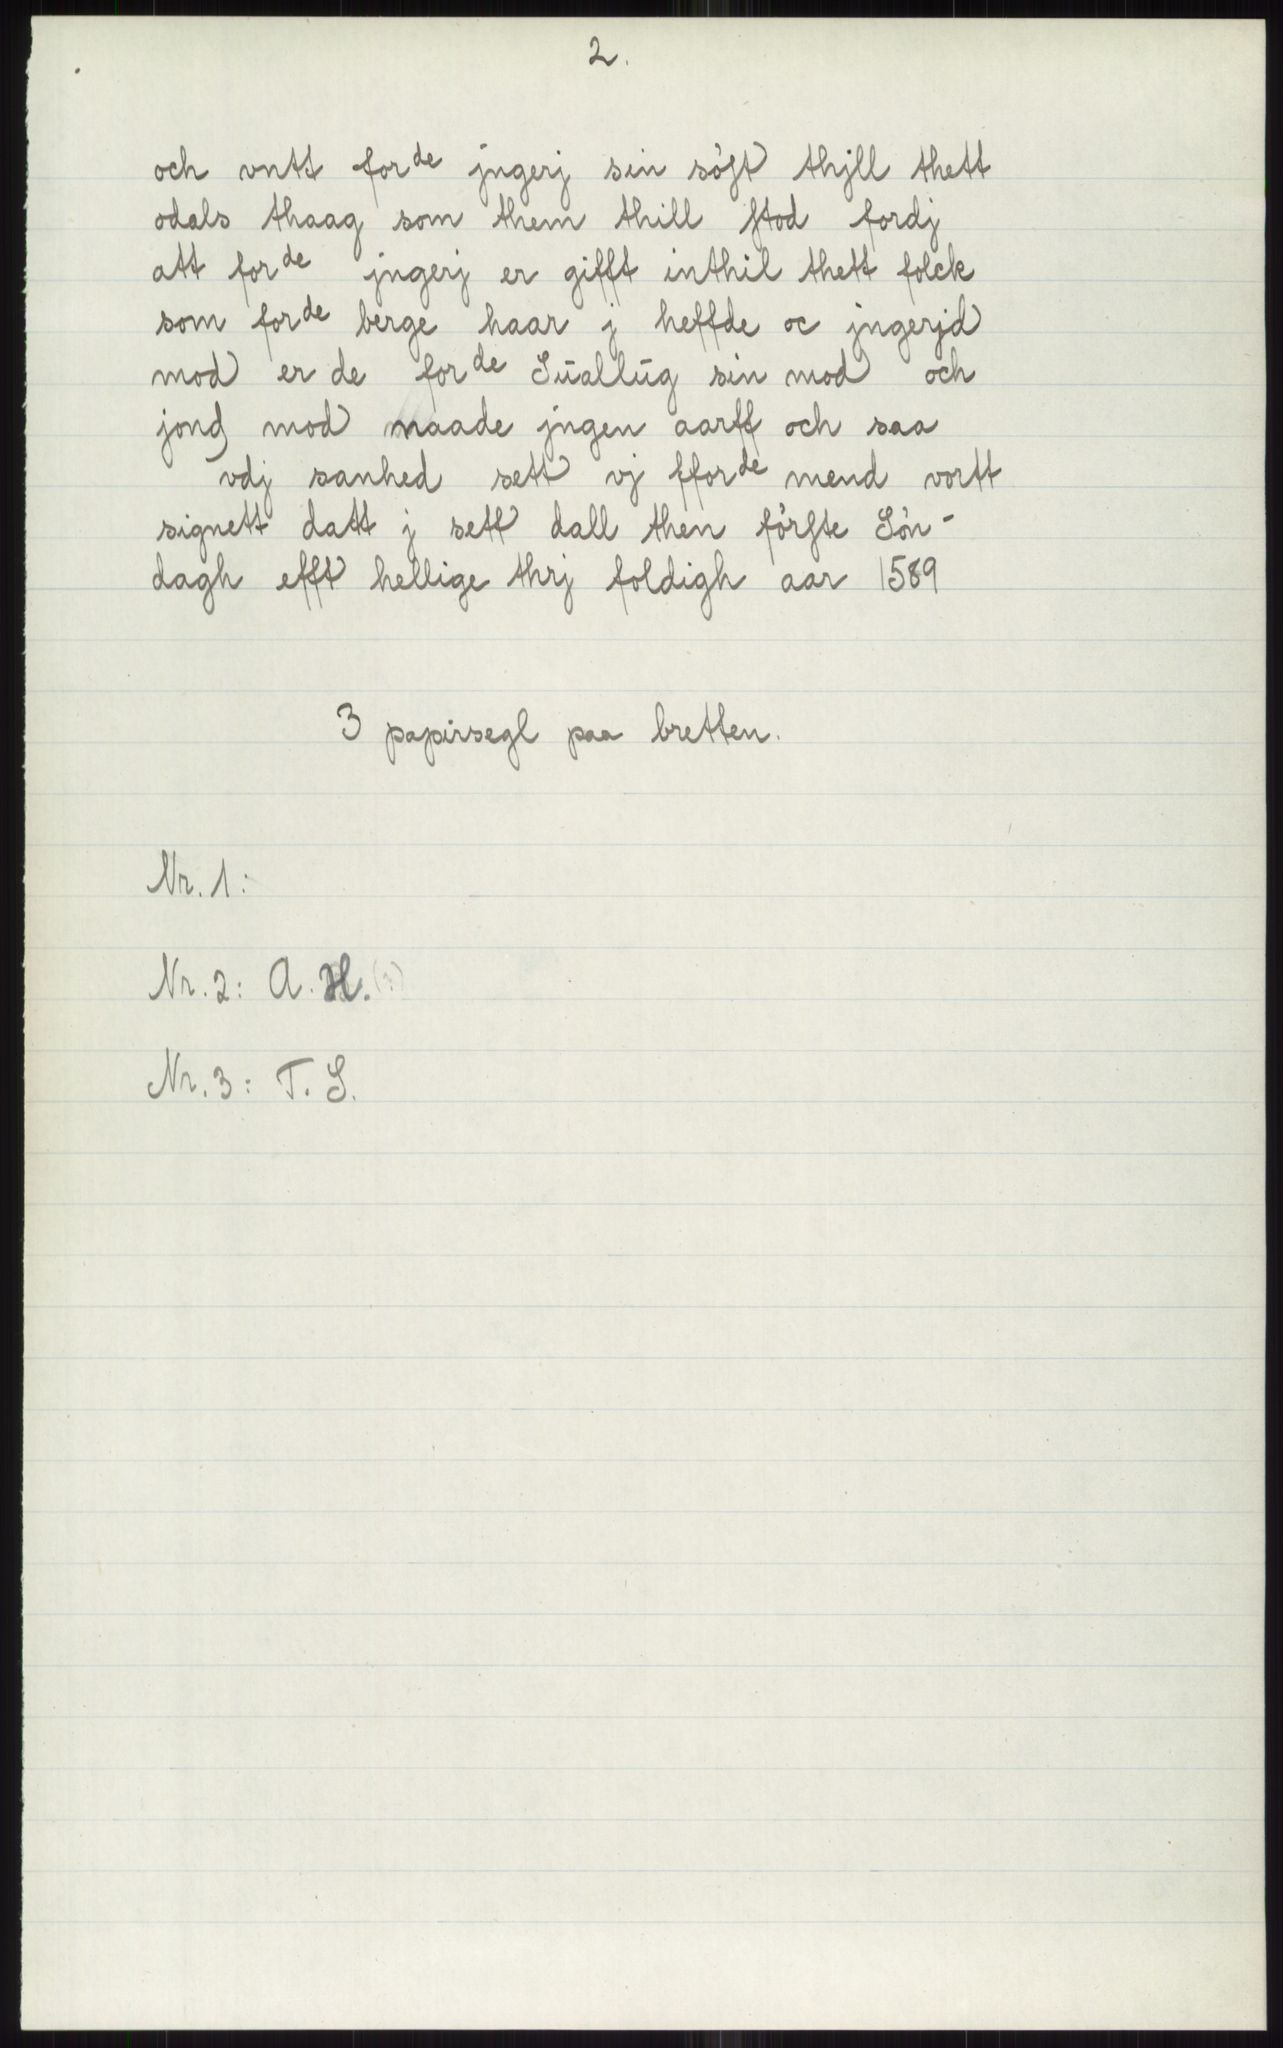 2.
och vntt forde jngerj sin söst thjll thett
odals thaag som them thill stod fordj
att forde jngerj er gifft inthil thett folck
som forde berge haar j heffde oc jngerjd
mod er de forde Sūallūg sin mod och
jond mod naade jngen aarff och saa
vdj sanhed sett vj fforde mend vortt
signett datt j sett dall then förste Sön-
dagh efft hellige thrj foldigh aar 1589
3 papirsegl paa bretten.
Nr. 1:
Nr. 2: A. H. (?)
Nr. 3: T. S.